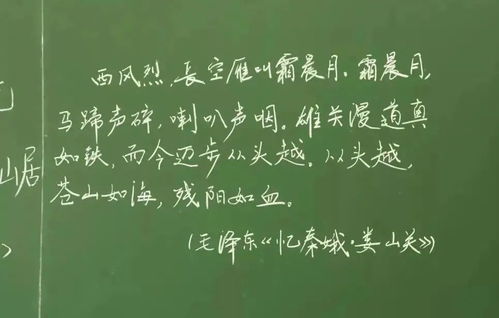 西风烈,長空雁叫霜晨月。霜晨月,
马蹄声碎,喇叭声咽。雄关漫道真
如铁,而今迈步从头越。从头越,
苍山如海,残阳如血。
(毛泽东《忆秦娥·娄山关》)
山居